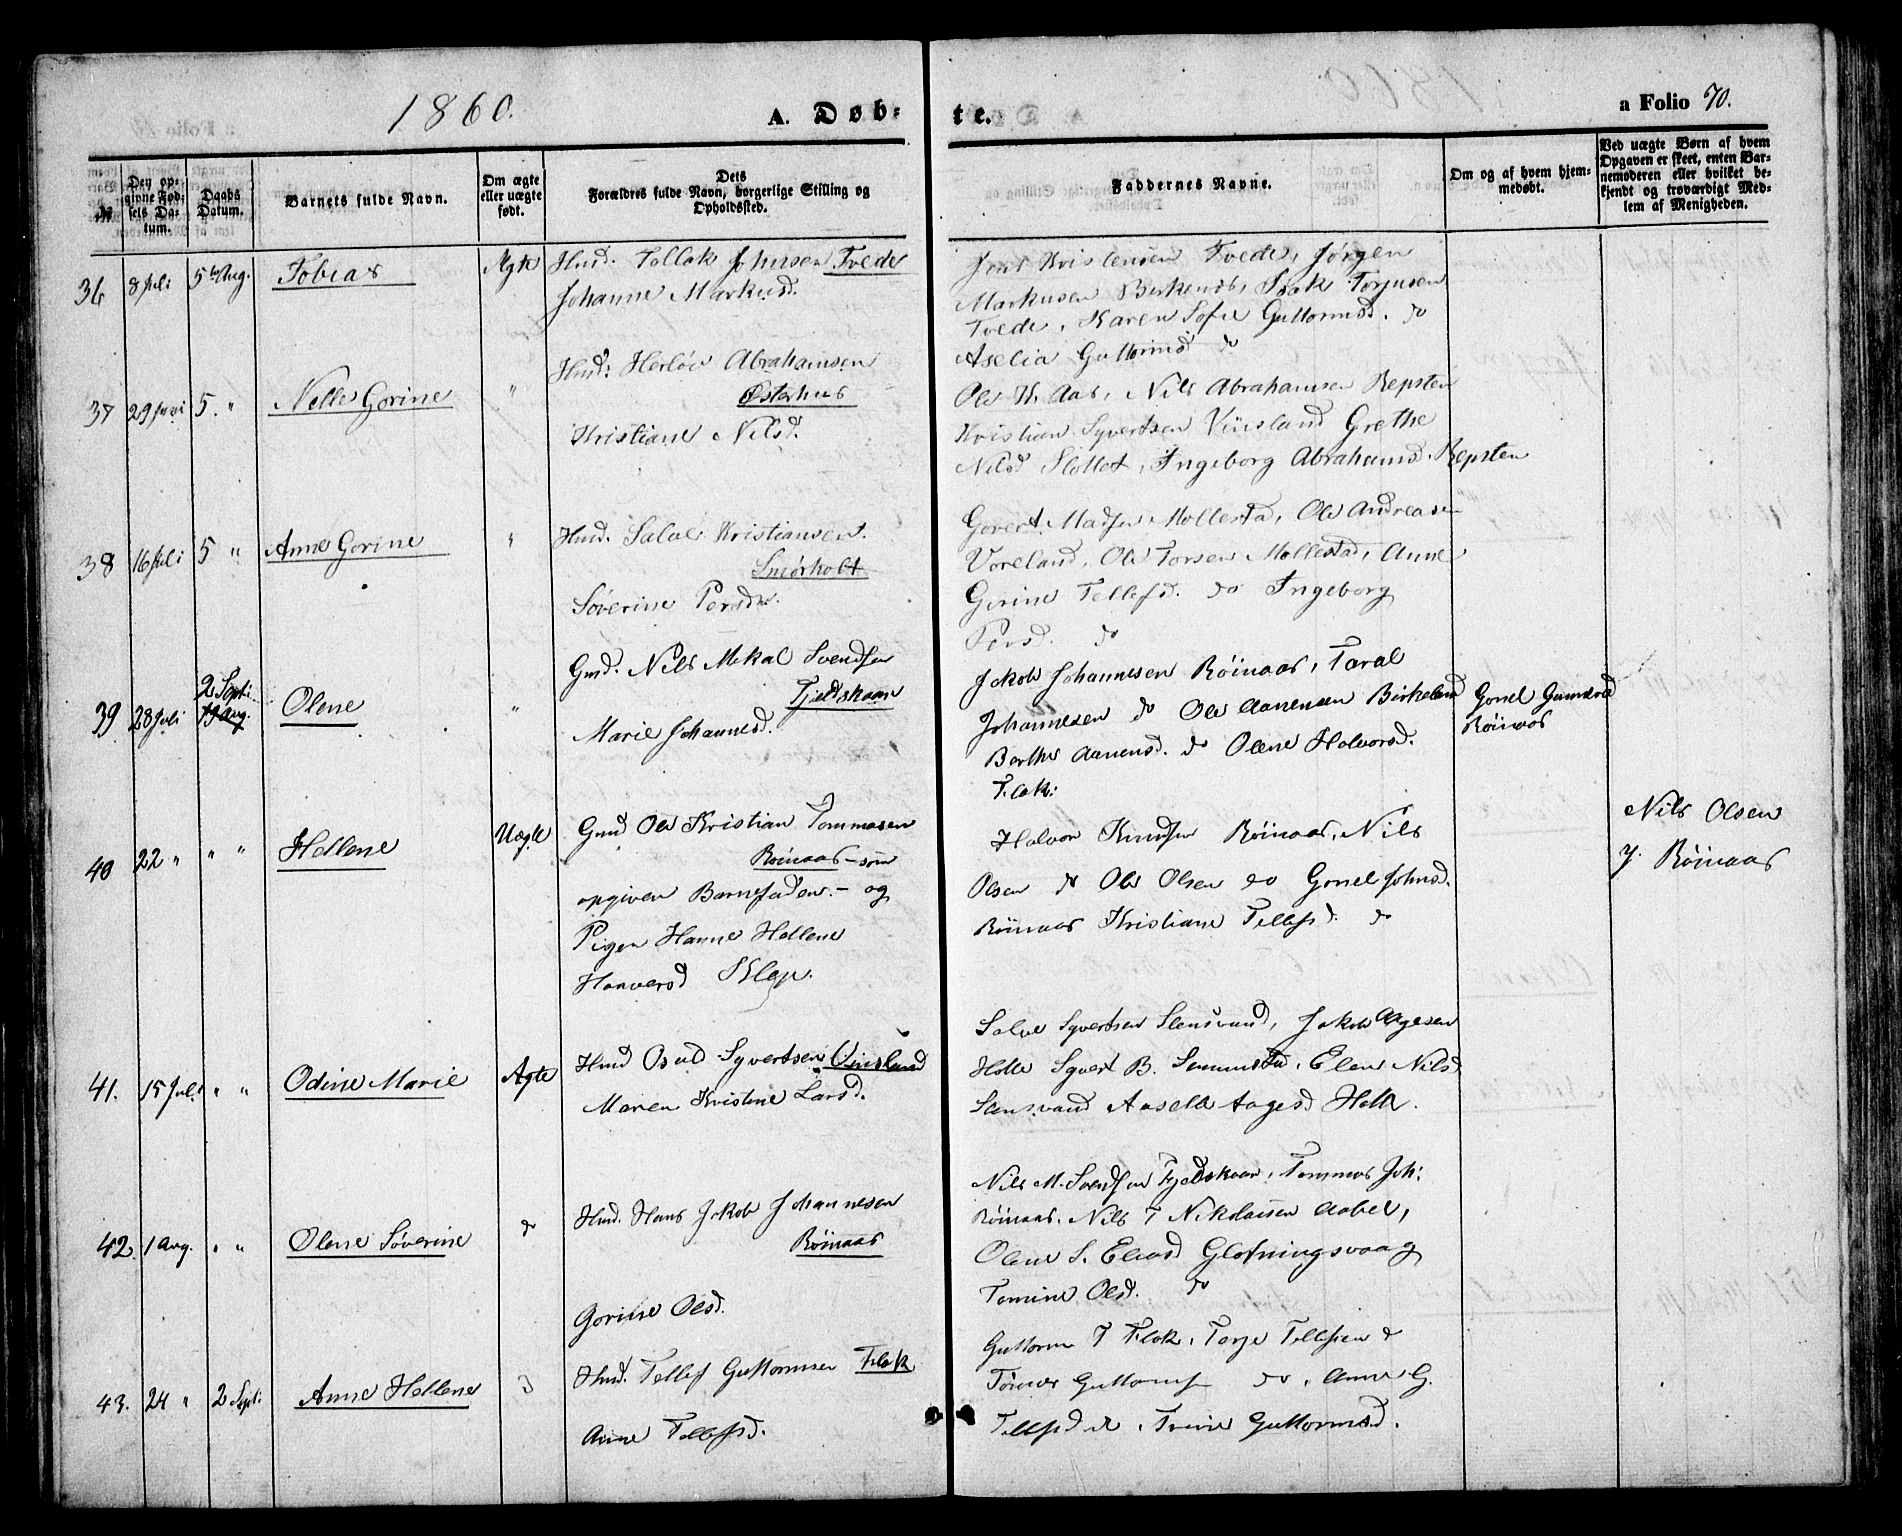 1860.
A. Døb-
te.
a Folio 70.
№
Den opgivne Fødsels Datum.
Daabs Datum.
Barnets fulde Navn.
Om ægte eller uægte født.
Dets Forældres fulde Navn, borgerlige Stilling og Opholdssted.
Faddernes Navne.
Om og af hvem hjemmedøbt.
Ved uægte Børn af hvem Opgaven er skeet, enten Barnemoderen eller hvilket bekjendt og troværdigt Medlem af Menigheden.
36 8 Juli 5te Aug. Tobias Ægte Hmd. Tellak Johnsen Tvede
Johanne Markusd.
Jens Kristensen Tvede, Jørgen
Markusen Birkenes, Isak Torjusen
Tvede, Karen Sofie Guttormsd. do
Aselia Guttormsd do
37 29 Juni 5. " Nelle Gorine " Hmd: Herløv Abrahamsen
Østerhus
Kristiane Nilsd.
Ole K. Aas, Nils Abrahamsen Repsten
Kristian Syvertsen Viinsland Grethe
Nilsd Slottet, Ingeborg Abrahamsd. Repsten
38 16 Juli 5 " Anne Gorine " Hmd. Salve Kristiansen.
Smørholt
Søverine Persd.
Govert Madsen Mollestad, Ole Andreasen
Voreland, Ole Torsen Mollestad, Anne
Gorine Tellefsd. do Ingeborg
Persd. do
39 28 Juli 2 Sept: 19 Aug. Olene " Gmd. Nils Mikal Svendsen
Fjeldskaar
Marie Johannesd.
Jakob Johannesen Röinaas, Taral
Johannesen do Ole Aanensen Birkeland
Berthe Aanensd. do Olene Halvorsd.
Flak:
Gonel Gundersd
Röinaas
40 22 " " " Hellene Uægte Gmd Ole Kristian Tommasen
Röinaas - som
opgiven Barnefader. - og
Pigen Hanne Hellene
Haaversd Klep.
Halvor Knudsen Röinaas, Nils
Olsen do Ole Olsen do Gonel Johnsd.
Röinaas Kristiane Tellefsd. do
Nils Olsen
Röinaas
41. 15 Juli " " Odine Marie Ægte Hmd Osuld Syvertsen Viinsland
Maren Kristine Larsd.
Salve Syvertsen Stensvand, Jakob Aagesen
Holte Syvert B. Senumstad, Elen Nilsd
Stensvand Aaselle Aagesd Holte.
42. 1 Aug. " " Olene Söverine do Hmd. Hans Jakob Johannesen
Röinaas
Gorine Olsd.
Nils M. Svendsen Fjeldskaar, Tommas Joh:
Röinaas. Nils T Nikolaisen Aabel,
Olene S. Eliasd Glofningsvaag
Tomine Olsd. do
43. 24 " 2 Sept: Anne Hellene do Hmd. Tellef Guttormsen Flak
Anne Tellefsd.
Guttorm T Flak, Torje Tellefsen do
Guttormsen do, Anne G.
Tellefsd do, Guttormsd.